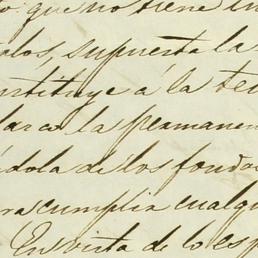 que no tiene in
los, supuesta la
nstituye á la te
lar a la permanen
éndola de los fondo
ra cumplir cualqu
En vista de lo esp